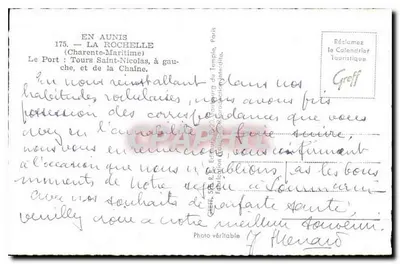 EN AUNIS
175. — LA ROCHELLE
(Charente-Maritime)
Le Port : Tours Saint-Nicolas, à gau-
che, et de la Chaîne.
Réclamez
le Calendrier
Touristique
Greff
En nous réinstallant dans nos
habitudes rochelaises, nous avons pris
possession des correspondances que vous
avez eu l'amabilité de faire suivre,
nous vous en remercions, vous confirmant
à l'occasion que nous n'oublions pas les bons
moments de notre séjour à
Avec nos souhaits de parfaite santé,
veuillez croire à notre meilleur souvenir.
Photo véritable